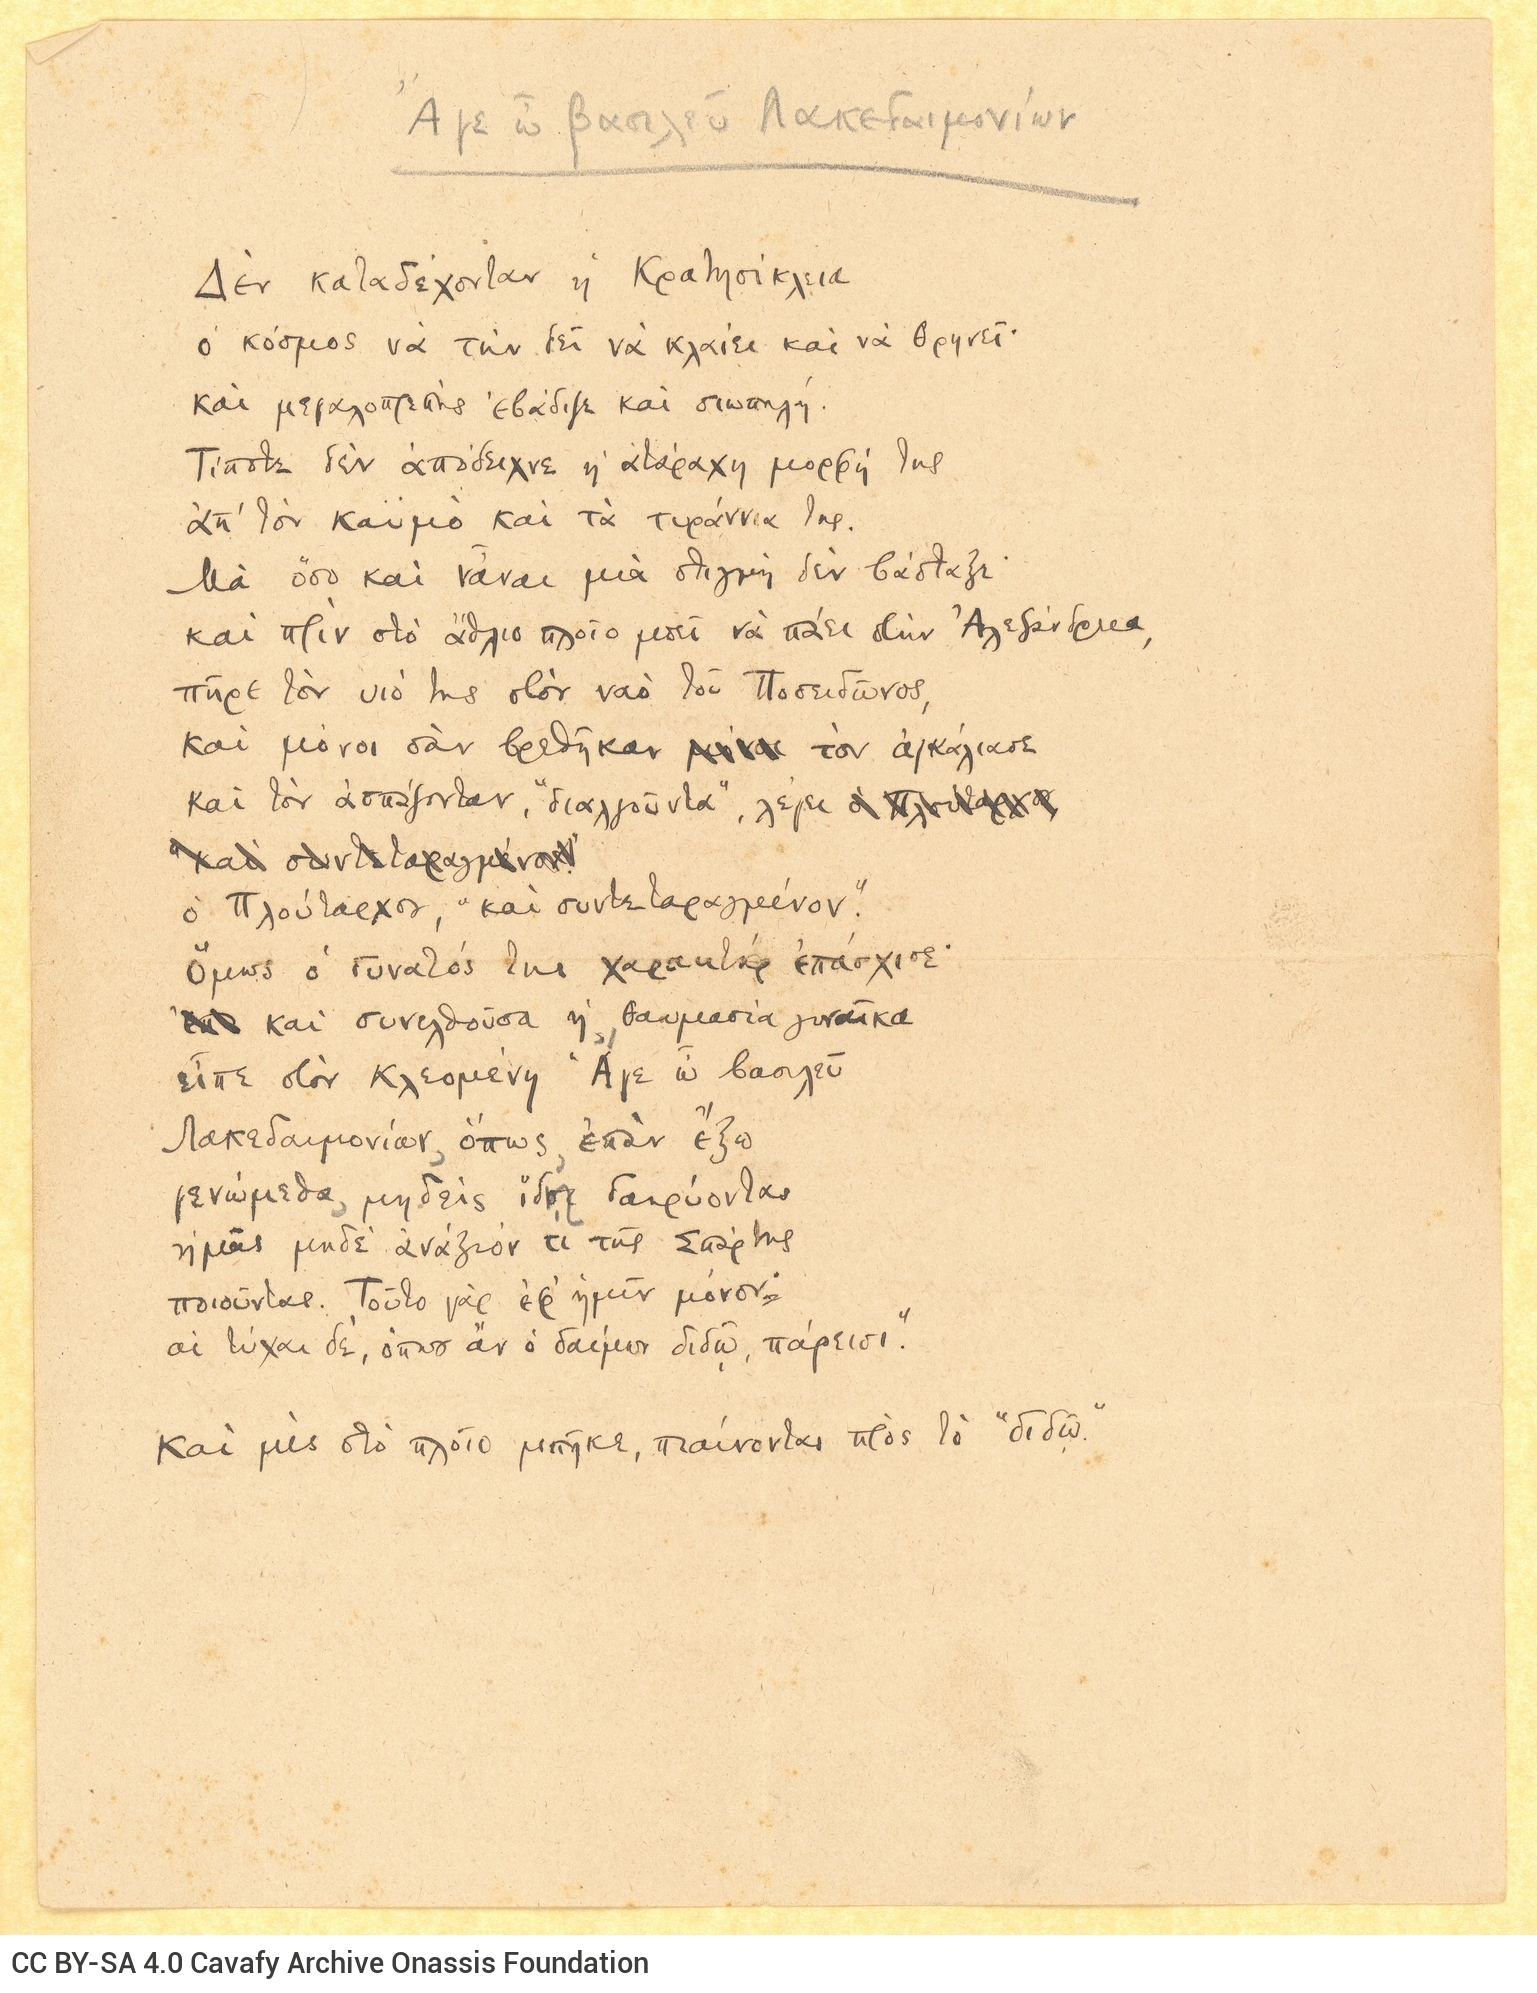 Ἄγε ὦ βασιλεῦ Λακεδαιμονίων
Δὲν καταδέχονταν ἡ Κρατησίκλεια
ὁ κόσμος νὰ τὴν δεῖ νὰ κλαίει καὶ νὰ θρηνεῖ·
καὶ μεγαλοπρεπὴς ἐβάδιζε καὶ σιωπηλή.
Τίποτε δὲν ἀπόδειχνε ἡ ἀτάραχη μορφή της
ἀπ' τὸν καϋμὸ καὶ τὰ τυράννια της.
Μὰ ὅσο καὶ νἆναι μιὰ στιγμὴ δὲν βάσταξε·
καὶ πρὶν στὸ ἄθλιο πλοῖο μπεῖ νὰ πάει στὴν Ἀλεξάνδρεια,
πῆρε τὸν υἱό της στὸν ναὸ τοῦ Ποσειδῶνος,
καὶ μόνοι σὰν βρεθῆκαν μόνοι τὸν ἀγκάλιασε
καὶ τὸν ἀσπάζονταν, "διαλγοῦντα", λέγει ὁ Πλούταρχος,
"καὶ συντεταραγμένον".
ὁ Πλούταρχος, "καὶ συντεταραγμένον".
Ὅμως ὁ δυνατός της χαρακτήρ ἐπάσχισε·
καὶ συνελθοῦσα ἡ θαυμασία γυναῖκα
εἶπε στὸν Κλεομένη "Ἄγε ὦ βασιλεῦ
Λακεδαιμονίων, ὅπως, ἐπὰν ἔξω
γενώμεθα, μηδεὶς ἴδῃ δακρύοντας
ἡμᾶς μηδὲ ἀνάξιόν τι τῆς Σπάρτης
ποιοῦντας. Τοῦτο γὰρ ἐφ' ἡμῖν μόνον·
αἱ τύχαι δέ, ὅπως ἂν ὁ δαίμων διδῷ, πάρεισι".
Καὶ μὲς στὸ πλοῖο μπῆκε, πιαίνοντας πρὸς τὸ "διδῷ."
CC BY-SA 4.0 Cavafy Archive Onassis Foundation